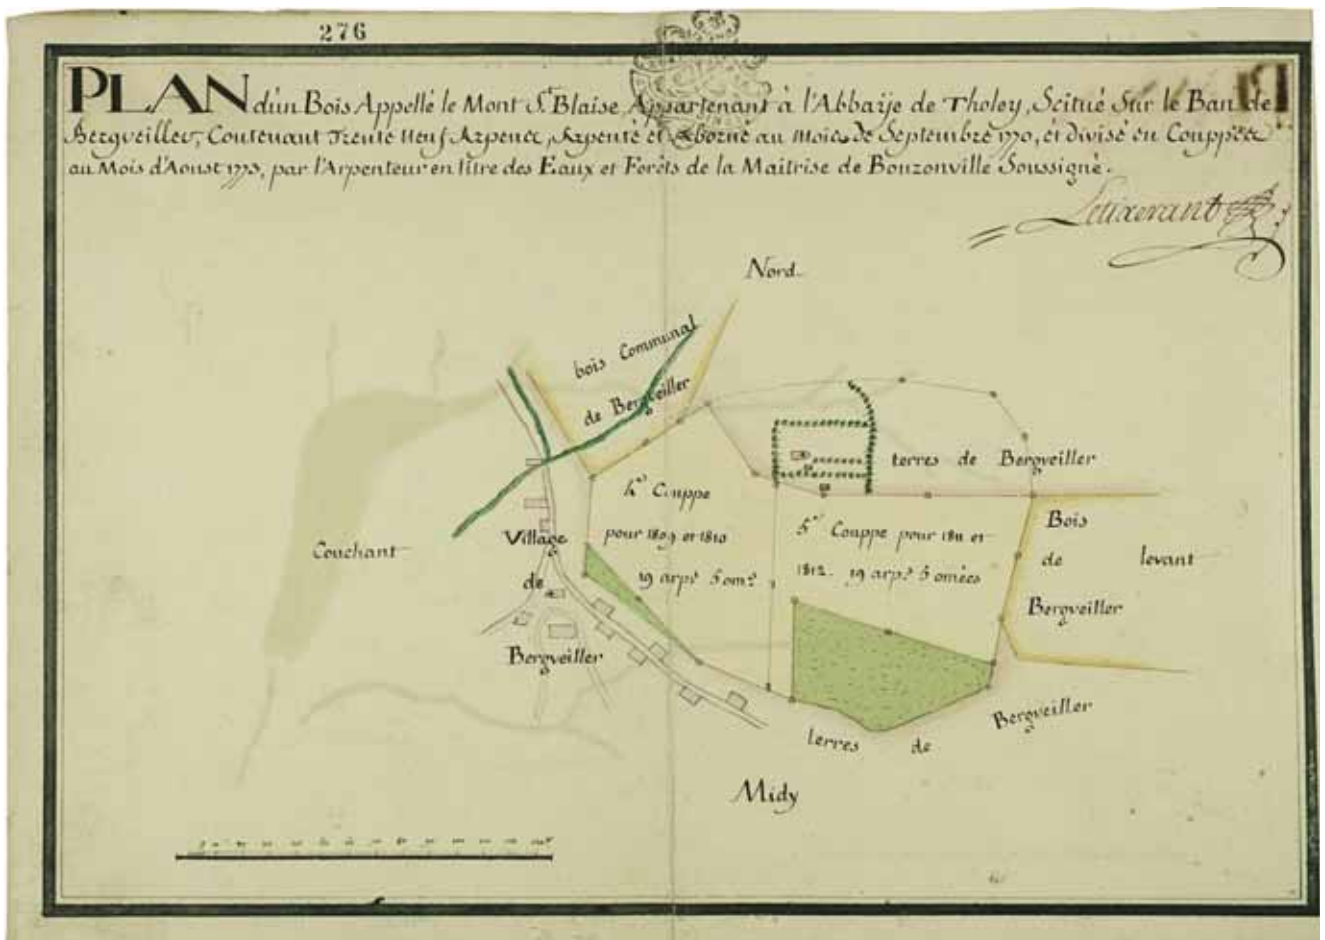 276
PLAN d'un Bois Appellé le Mont St. Blaise Appartenant à l'Abbaÿe de Tholey, Scitué Sur le Ban de
Bergveiller, Contenant Trente Neuf Arpens, Arpenté et Aborné au Mois de Septembre 1770, et divisé en Couppes
au Mois d'Aoust 1773, par l'Arpenteur en titre des Eaux et Forêts de la Maitrise de Bouzonville Soussigné.
Letixerant
Nord
bois Communal
de Bergveiller
terres de Bergveiller
4e Couppe
pour 1809 et 1810
19 arps. 5 oms.
5e Couppe pour 1811 et
1812. 19 arps. 5 omées
Bois
de
Bergveiller
levant
Couchant
Village
de
Bergveiller
terres de Bergveiller
Midy